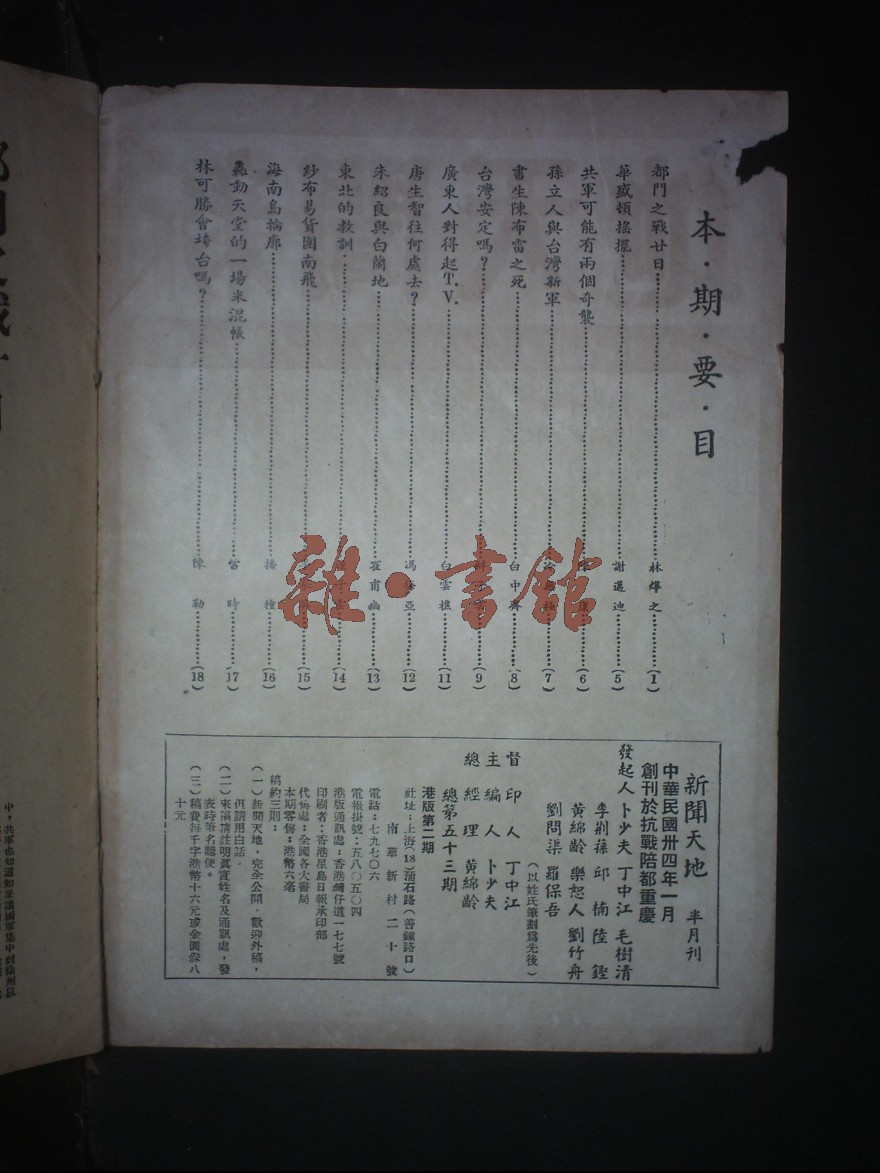 本·期·要·目
都門之戰廿日 林燁之 (1)
華盛頓搖擺 謝邁迪 (5)
共軍可能有兩個奇襲 (6)
孫立人與台灣新軍 (7)
書生陳布雷之死 白中 (8)
台灣安定嗎? (9)
廣東人對得起T.V. 白雲樵 (11)
唐生智往何處去? 馮 亞 (12)
朱紹良與白蘭地 甫幽 (13)
東北的教訓 (14)
紗布易貨團南飛 (15)
海南島輪廓 播種 (16)
轟動天堂的一場米混帳 富時 (17)
林可勝會垮台嗎? 陳勒 (18)
新聞天地 半月刊
中華民國卅四年一月
創刊於抗戰陪都重慶
發起人 卜少夫 丁中江 毛樹清
李荆蓀 邱楠 陸鏗
黃綿齡 樂恕人 劉竹舟
劉問渠 羅保吾
(以姓氏筆劃為先後)
督印人 丁中江
主編人 卜少夫
總經理 黃綿齡
總第五十三期
港版第二期
社址:上海(18)蒲石路(善鐘路口)
南華新村二十號
電話:七九七〇六
電報掛號:五八〇五〇四
港版通訊處:香港灣仔道一七七號
印刷者:香港星島日報承印部
代售處:全國各大書局
本期零售:港幣六毫
稿約三則:
(一)新聞天地,完全公開,歡迎外稿,
但請用白話。
(二)來稿請註明真實姓名及通訊處,發
表時筆名聽便。
(三)稿費每千字港幣十六元或金圓券八
十元
中,共軍也知道如果讓國軍集中到徐州以
雜·書館